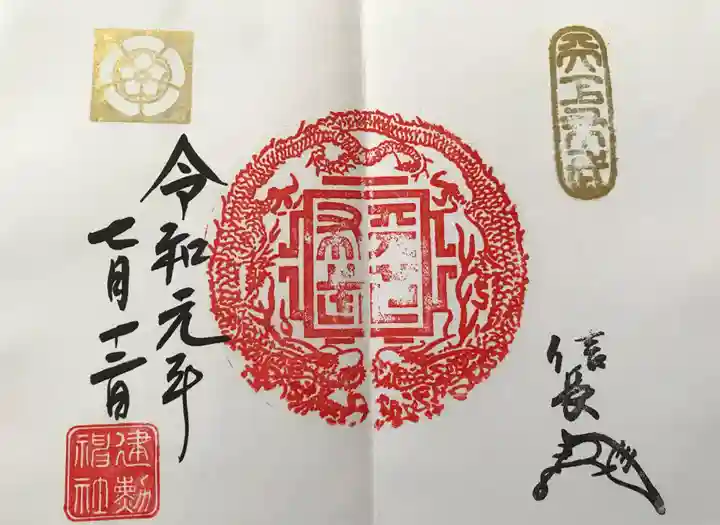 天下布武
天下布武
信長
令和元年
七月十三日
建勲
神社